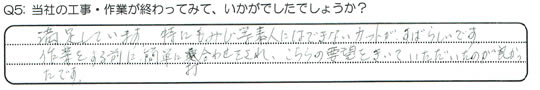 Q5: 当社の工事・作業が終わってみて、いかがでしたでしょうか?
満足しています 特にもみじ等素人にはできないカットがすばらしいです
作業をする前に簡単に打合わせをされ、こちらの要望をきいていただいたのが良かっ
たです。